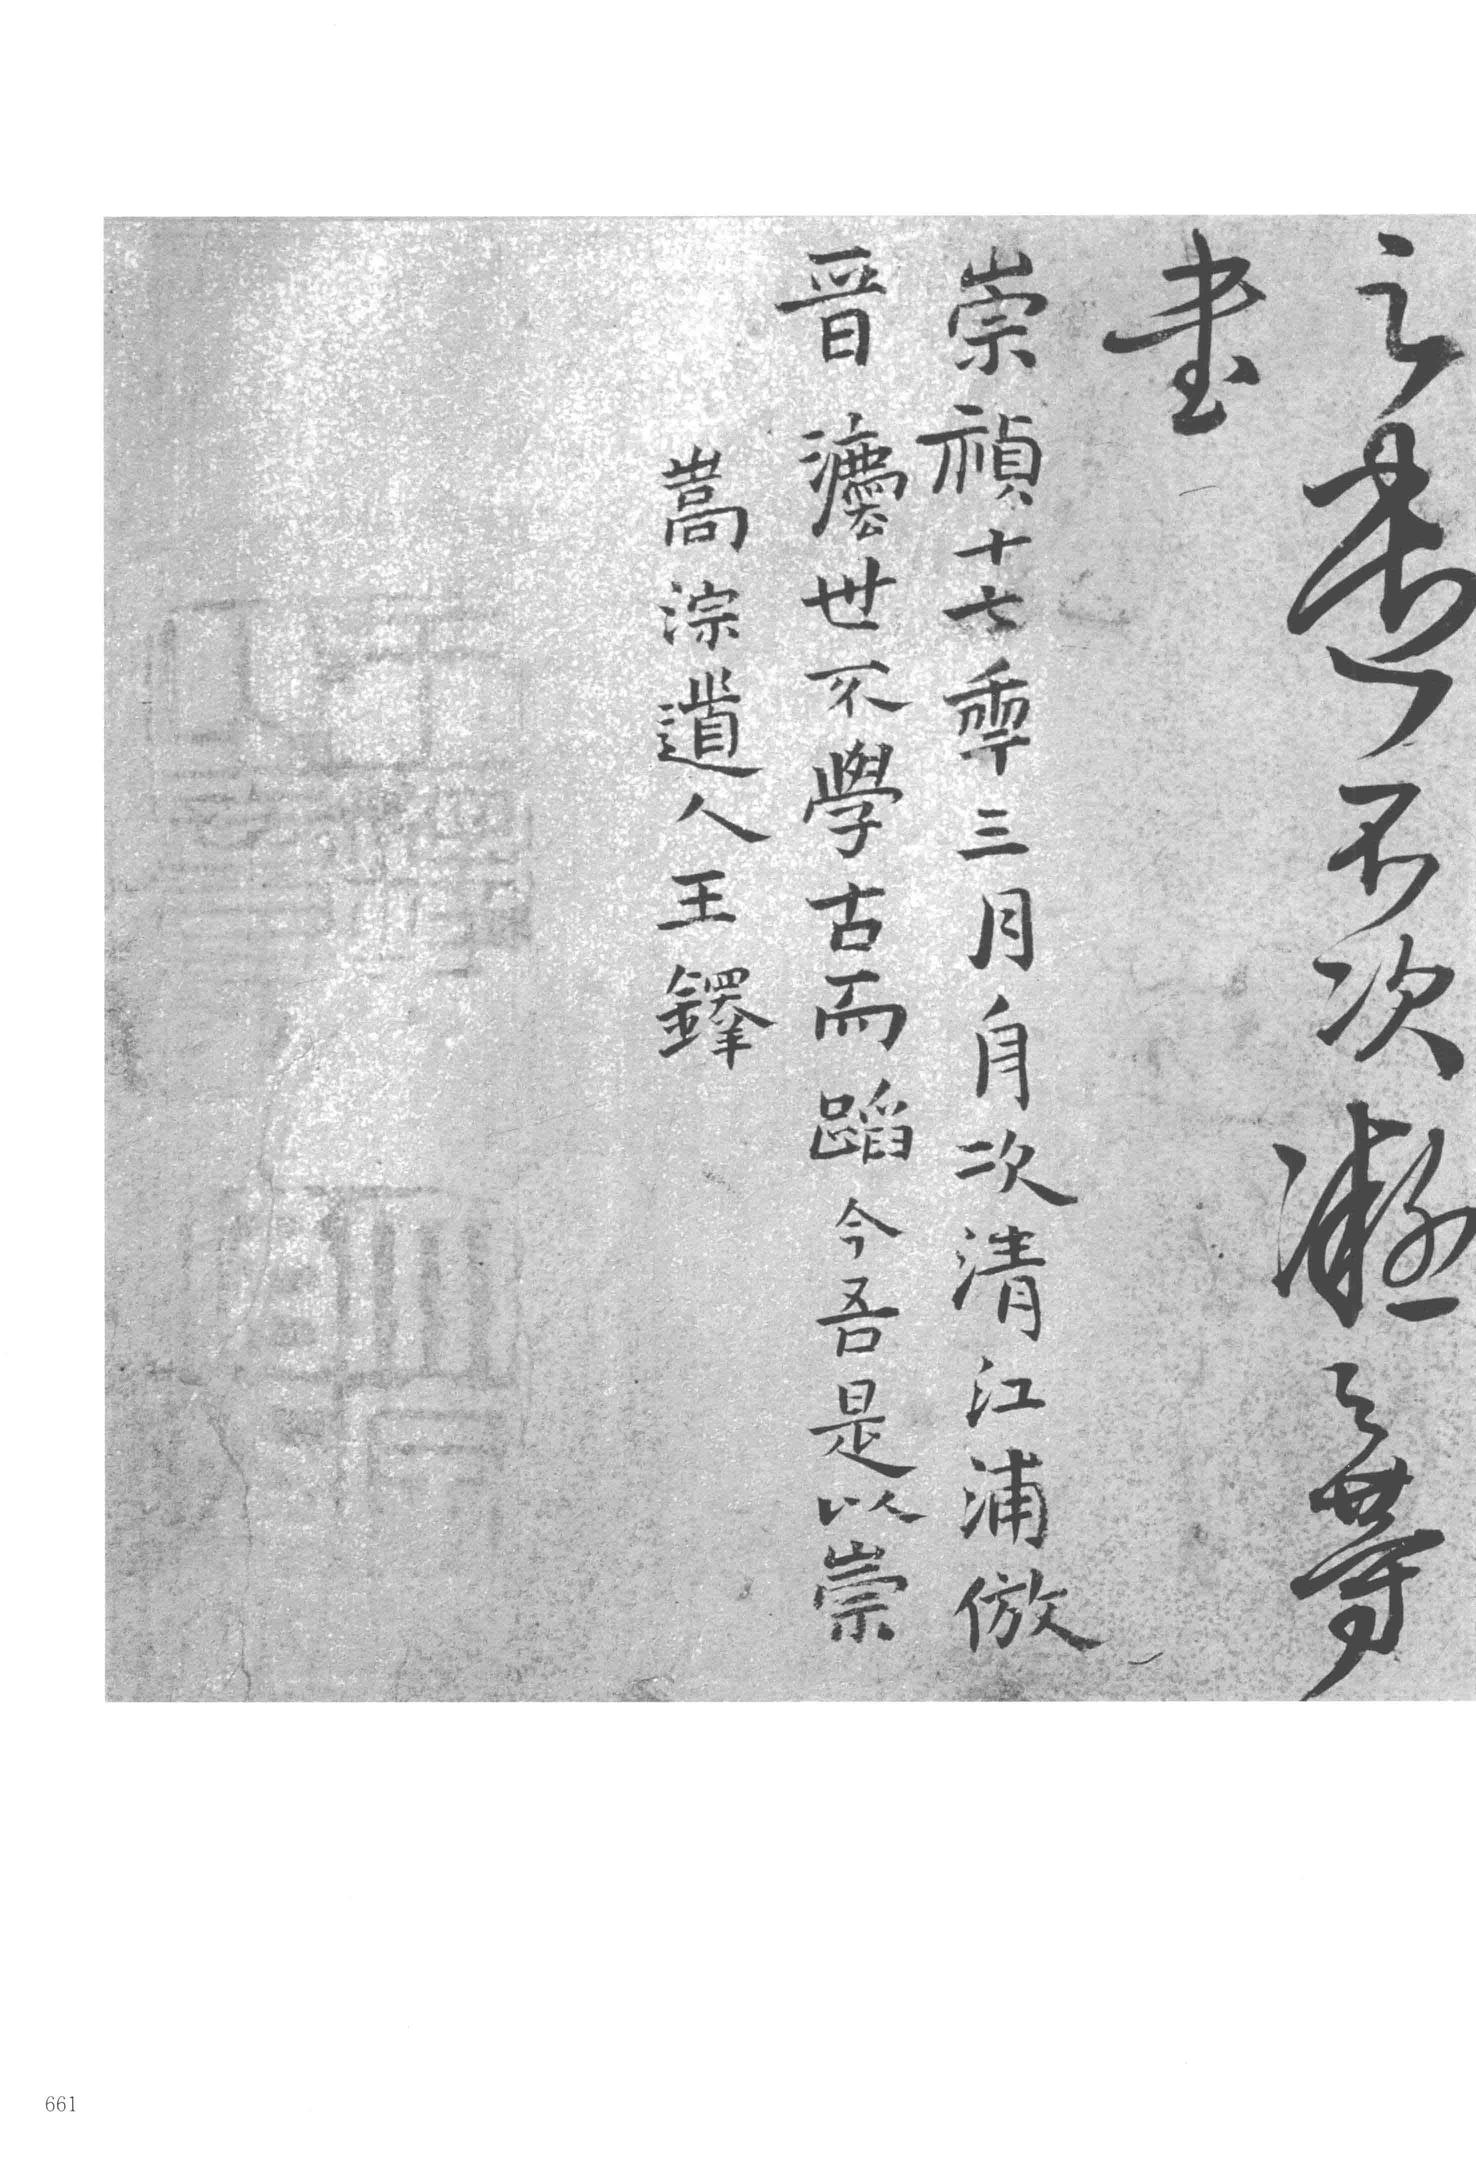 不次凝之等
書
崇禎十七秊三月舟次清江浦倣
晉灋世不學古而蹈今吾是以崇
嵩淙道人王鐸
661